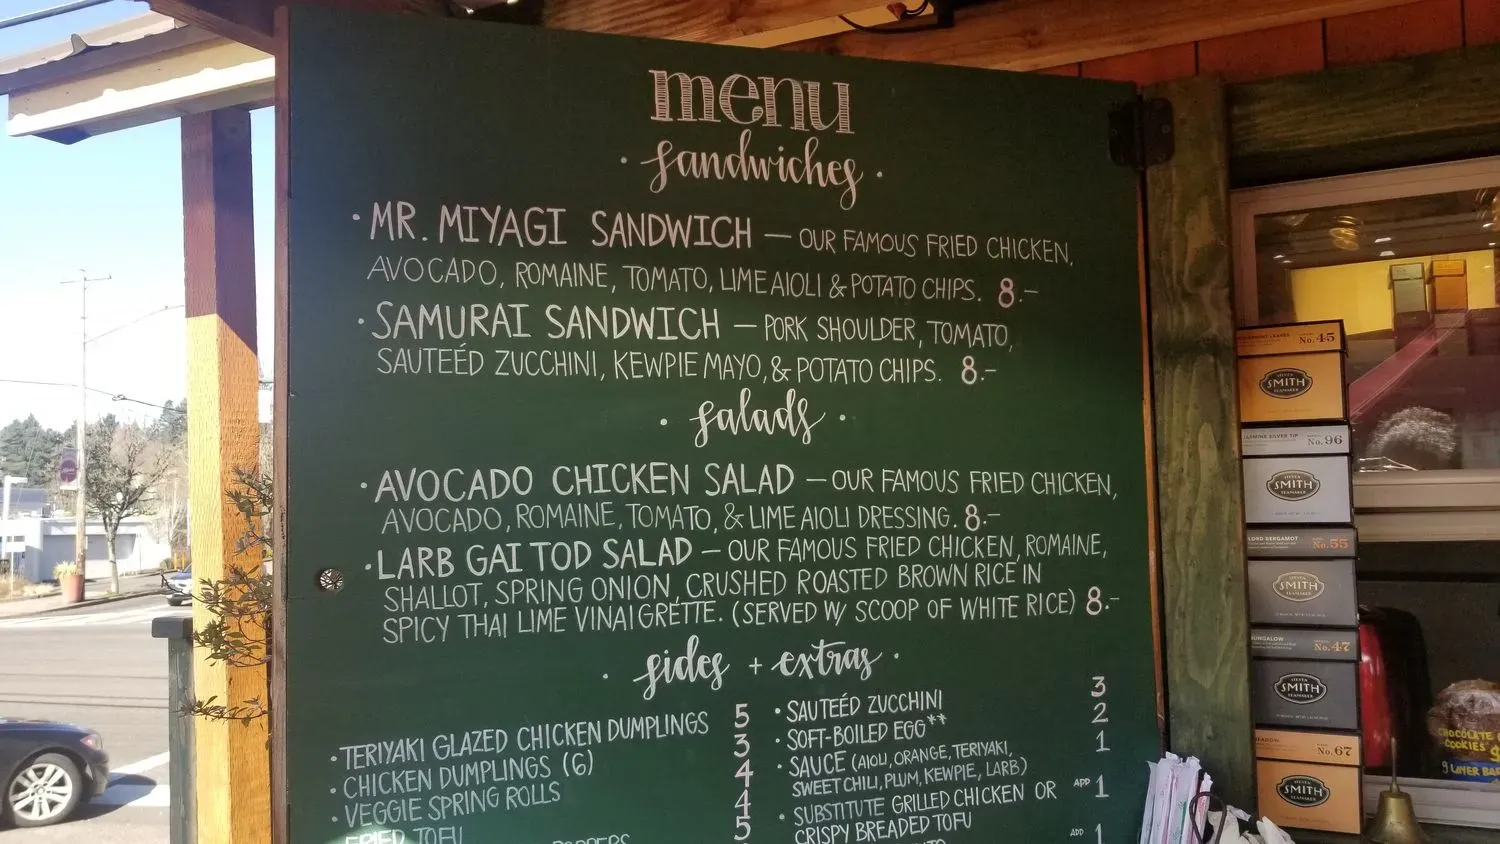 menu
· sandwiches ·
· MR. MIYAGI SANDWICH — OUR FAMOUS FRIED CHICKEN,
AVOCADO, ROMAINE, TOMATO, LIME AIOLI & POTATO CHIPS. 8.–
· SAMURAI SANDWICH — PORK SHOULDER, TOMATO,
SAUTEÉD ZUCCHINI, KEWPIE MAYO, & POTATO CHIPS. 8.–
· salads ·
· AVOCADO CHICKEN SALAD — OUR FAMOUS FRIED CHICKEN,
AVOCADO, ROMAINE, TOMATO, & LIME AIOLI DRESSING. 8.–
· LARB GAI TOD SALAD — OUR FAMOUS FRIED CHICKEN, ROMAINE,
SHALLOT, SPRING ONION, CRUSHED ROASTED BROWN RICE IN
SPICY THAI LIME VINAIGRETTE. (SERVED W/ SCOOP OF WHITE RICE) 8.–
· sides + extras ·
· TERIYAKI GLAZED CHICKEN DUMPLINGS 5
· CHICKEN DUMPLINGS (6) 3
· VEGGIE SPRING ROLLS 4
FRIED TOFU 4
5
· SAUTEÉD ZUCCHINI 3
· SOFT-BOILED EGG** 2
· SAUCE (AIOLI, ORANGE, TERIYAKI, 1
SWEET CHILI, PLUM, KEWPIE, LARB)
· SUBSTITUTE GRILLED CHICKEN OR ADD 1
CRISPY BREADED TOFU
ADD 1
No. 45
STEVEN
SMITH
TEAMAKER
JASMINE SILVER TIP No. 96
STEVEN
SMITH
TEAMAKER
LORD BERGAMOT No. 55
STEVEN
SMITH
TEAMAKER
BUNGALOW No. 47
STEVEN
SMITH
TEAMAKER
MEADOW No. 67
STEVEN
SMITH
TEAMAKER
CHOCOLATE
COOKIES
9 LAYER BAR